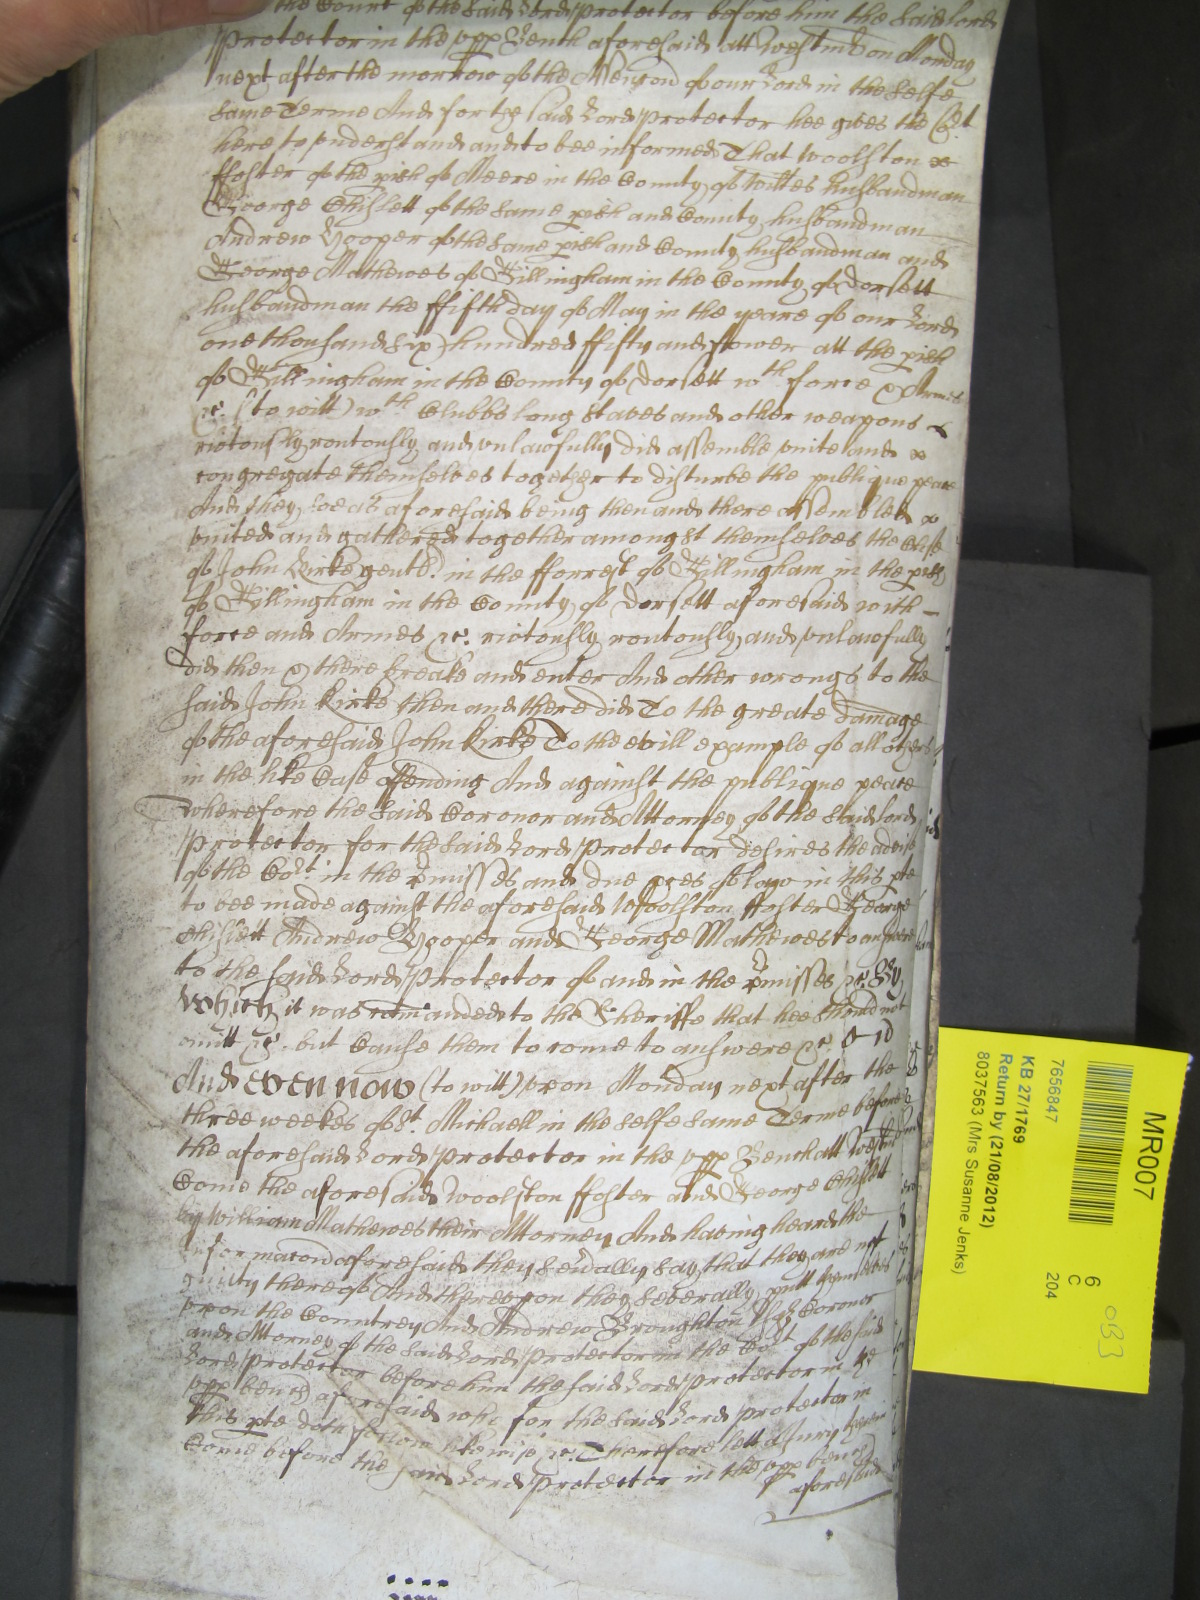 the Court of the said Lord Protector before him the said lord
Protector in the upp Bench aforesaid att Westmr on Monday
next after the morrow of the Ascencon of our Lord in the selfe
same Terme And for the said Lord Protector hee gives the Cort
here to understand and to bee informed That Woolston
ffoster of the pish of Meere in the County of Wiltes husbandman
George Chislett of the same pish and County husbandman
Andrew Hooper of the same pish and County husbandman and
George Mathewes of Gillingham in the County of Dorsett
husbandman the ffifth day of May in the yeare of our Lord
one thousand six hundred ffifty and ffower att the pish
of Gillingham in the County of Dorsett wth force & Armes
&c. (to witt) wth Clubbs long staves and other weapons
riotously routously and unlawfully did assemble unite and
congregate themselves together to disturbe the publique peace
And they soe as aforesaid being then and there assembled
united and gathered together amongst themselves the Close
of John Kirke gentl. in the fforrest of Gillingham in the pish
of Gillingham in the County of Dorsett aforesaid with
force and Armes &c. riotously routously and unlawfully
did then & there breake and enter And other wrongs to the
said John Kirke then and there did To the greate damage
of the aforesaid John Kirke To the evill example of all others
in the like Case offending And against the publique peace
Wherefore the said Coronor and Attorney of the said lord
Protector for the said Lord Protector desires the advise
of the Cort in the pmisses and due pces of law in this pte
to bee made against the aforesaid Woolston ffoster George
Chislett Andrew Hooper and George Mathewes to answere
to the said Lord Protector of and in the pmisses &c. By
which it was comanded to the Sheriffe that hee should not
omitt &c. but Cause them to come to answere &c. And
And even now (to witt) upon Monday next after the
three weekes of St. Michaell in the selfe same Terme before
the aforesaid Lord Protector in the upp Bench att Westmr
Come the aforesaid Woolston ffoster and George Chislett
by William Mathewes their Attorney And having heard the
informacon aforesaid they sevally say that they are not
guilty thereof And thereupon they severally putt themselves
upon the Countrey And Andrew Broughton Esqr Coronor
and Attorney of the said Lord Protector in the Cort of the said
Lord Protector before him the said Lord Protector in the
upp bench aforesaid who for the said Lord Protector in
this pte doth follow likewise &c. Therefore lett a Jury thereon
Come before the said Lord Protector in the upp bench
aforesaid
MR007
7656847
6
C
204
KB 27/1769
Return by (21/08/2012)
8037563 (Mrs Susanne Jenks)
033